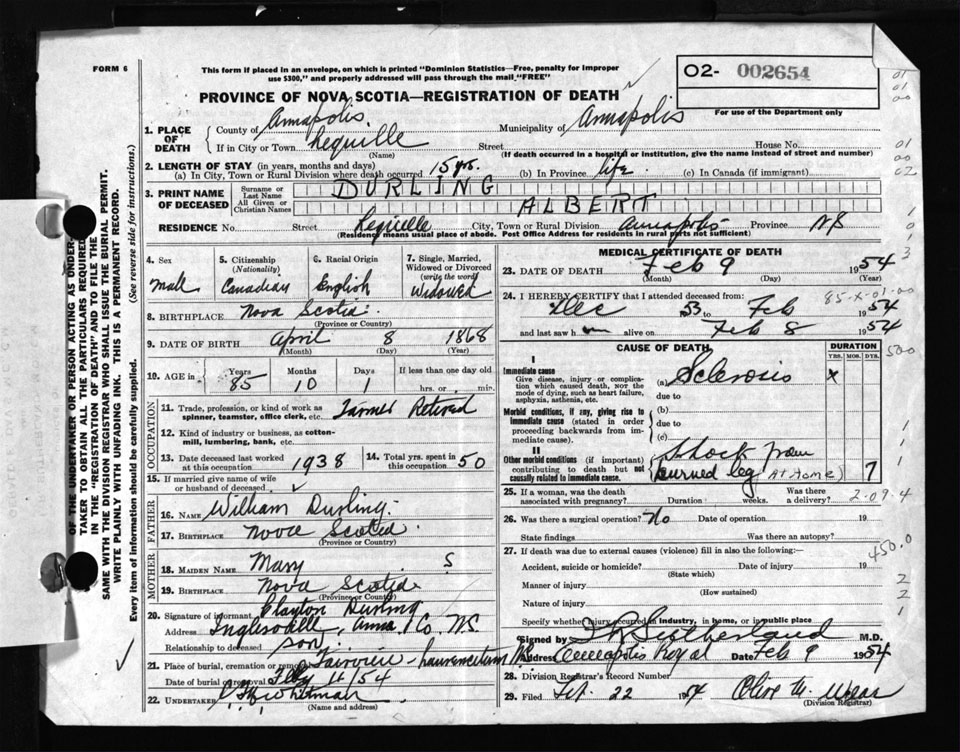 FORM 6
This form if placed in an envelope, on which is printed "Dominion Statistics—Free, penalty for improper
use $300," and properly addressed will pass through the mail "FREE"
PROVINCE OF NOVA SCOTIA—REGISTRATION OF DEATH
O2- 002654
For use of the Department only
1. PLACE OF DEATH
County of Annapolis Municipality of Annapolis
If in City or Town Lequille Street House No.
(Name) (If death occurred in a hospital or institution, give the name instead of street and number)
2. LENGTH OF STAY (in years, months and days)
(a) In City, Town or Rural Division where death occurred 15 yrs. (b) In Province life (c) In Canada (if immigrant)
3. PRINT NAME OF DECEASED
Surname or Last Name DURLING
All Given or Christian Names ALBERT
RESIDENCE No. Street Lequille City, Town or Rural Division Annapolis Province NS
(Residence means usual place of abode. Post Office Address for residents in rural parts not sufficient)
4. Sex 5. Citizenship (Nationality) 6. Racial Origin 7. Single, Married, Widowed or Divorced (write the word)
Male Canadian English Widowed
8. BIRTHPLACE Nova Scotia
(Province or Country)
9. DATE OF BIRTH April 8 1868
(Month) (Day) (Year)
10. AGE in Years Months Days If less than one day old
85 10 1 hrs. or min.
OCCUPATION
11. Trade, profession, or kind of work as
spinner, teamster, office clerk, etc. Farmer Retired
12. Kind of industry or business, as cotton-
mill, lumbering, bank, etc.
13. Date deceased last worked at this occupation 1938 14. Total yrs. spent in this occupation 50
15. If married give name of wife
or husband of deceased
FATHER
16. NAME William Durling
17. BIRTHPLACE Nova Scotia
(Province or Country)
MOTHER
18. MAIDEN NAME Mary S
19. BIRTHPLACE Nova Scotia
(Province or Country)
20. Signature of informant Clayton Durling
Address Inglisville, Anna. Co. N.S.
Relationship to deceased son
21. Place of burial, cremation or removal Fairview - Lawrencetown N.S.
Date of burial or removal Feby 11/54
22. UNDERTAKER Whitman
(Name and address)
MEDICAL CERTIFICATE OF DEATH
23. DATE OF DEATH Feb 9 1954
(Month) (Day) (Year)
24. I HEREBY CERTIFY that I attended deceased from:
Dec 53 to Feb 1954
and last saw him alive on Feb 8 1954
CAUSE OF DEATH DURATION
YRS. MOS. DYS.
I
Immediate cause
Give disease, injury or complica-
tion which caused death, NOT the
mode of dying, such as heart failure,
asphyxia, asthenia, etc.
(a) Sclerosis x
due to
Morbid conditions, if any, giving rise to
immediate cause (stated in order
proceeding backwards from im-
mediate cause).
(b)
due to
(c)
II
Other morbid conditions (if important)
contributing to death but not
causally related to immediate cause.
Shock from
burned leg (AT HOME) 7
25. If a woman, was the death
associated with pregnancy? Duration weeks. Was there a delivery?
26. Was there a surgical operation? No Date of operation 19
State findings Was there an autopsy?
27. If death was due to external causes (violence) fill in also the following:—
Accident, suicide or homicide? Date of injury 19
(State which)
Manner of injury
(How sustained)
Nature of injury
Specify whether injury occurred in industry, in home, or in public place
Signed by Sutherland M.D.
Address Annapolis Royal Date Feb 9 1954
28. Division Registrar's Record Number
29. Filed 22 1954 Olive M.
(Division Registrar)
OF THE UNDERTAKER OR PERSON ACTING AS UNDER-
TAKER TO OBTAIN ALL THE PARTICULARS REQUIRED
IN THE "REGISTRATION OF DEATH" AND TO FILE THE
SAME WITH THE DIVISION REGISTRAR WHO SHALL ISSUE THE BURIAL PERMIT.
WRITE PLAINLY WITH UNFADING INK. THIS IS A PERMANENT RECORD.
Every item of information should be carefully supplied. (See reverse side for instructions.)
01
01
00
01
00
02
85-X-01-00
500
2-09.4
450.0
2
2
1